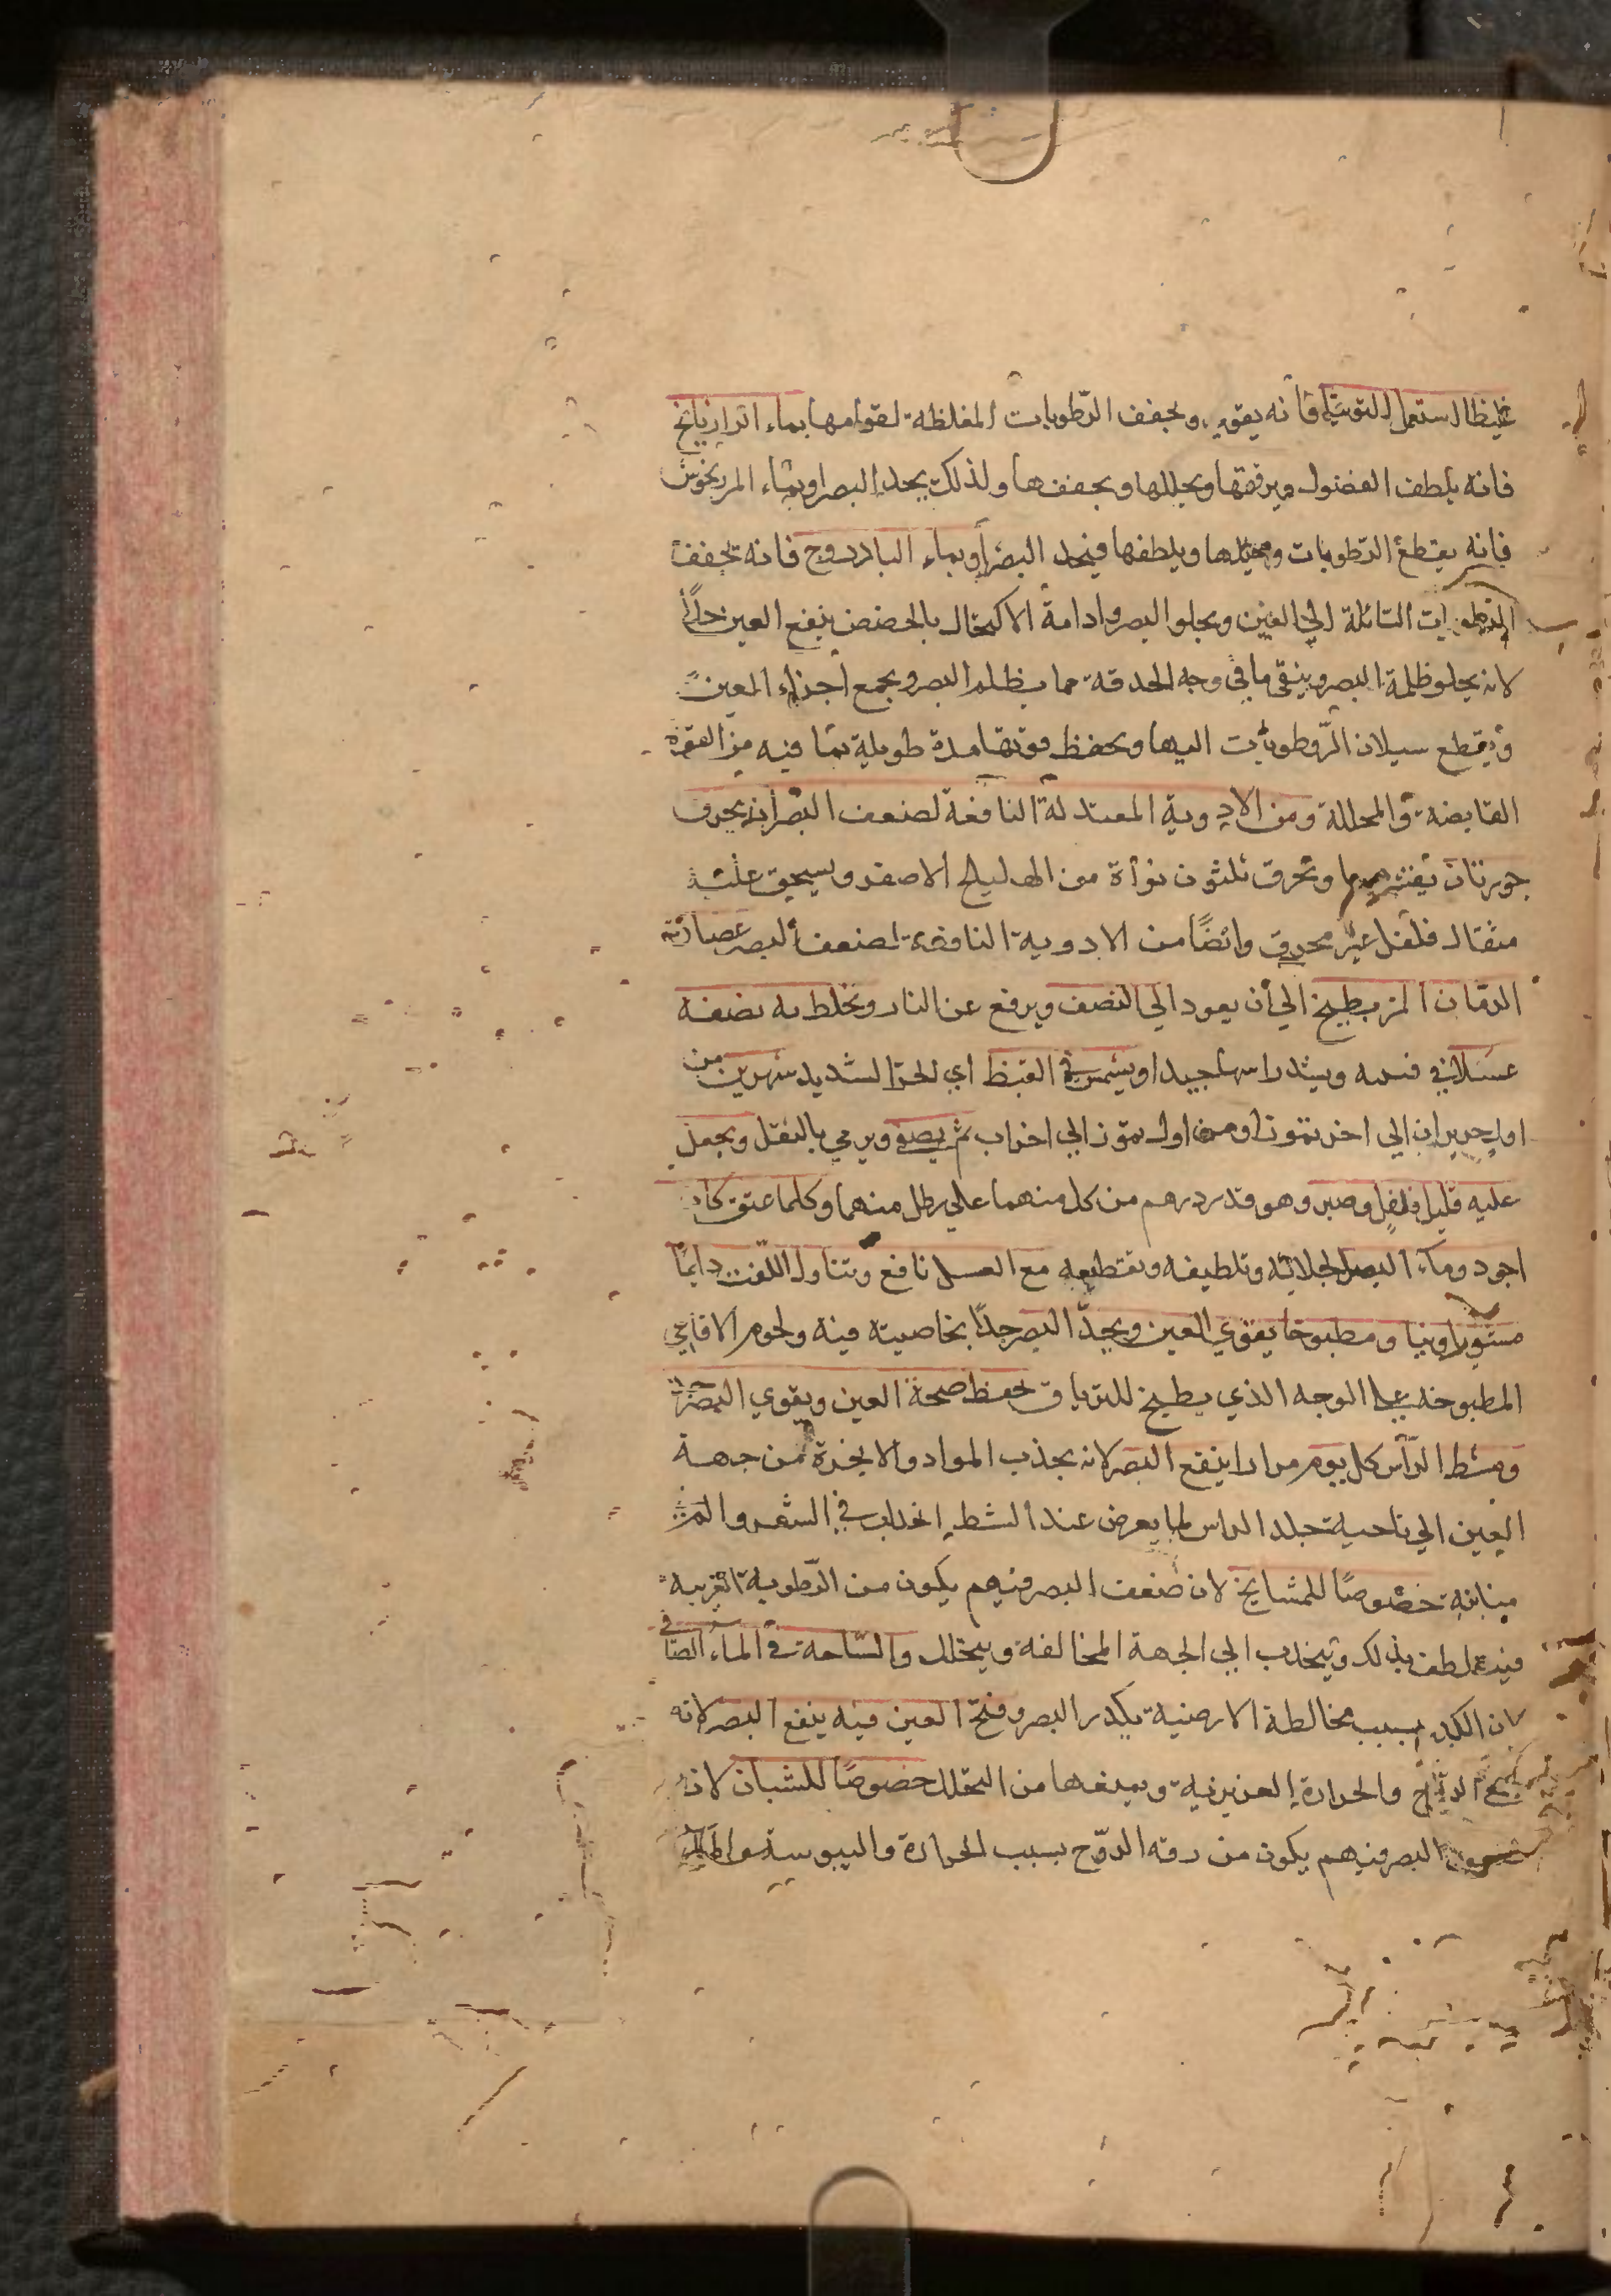 غليظا استعمل التوتيا فانه يقويه ويجفف الرطوبات المغلظة لقوامها بماء الرازيانج
فانه يلطف الفضول ويرققها ويحللها ويجففها ولذلك يحد البصر او بماء المرزنجوش
فانه يقطع الرطوبات ويحللها ويلطفها فيحد البصر او بماء الباذروج فانه يجفف
الرطوبات السائلة الي العين ويجلو البصر وادامة الاكتحال بالحضض ينفع العين جدا
لانه يجلو ظلمة البصر وينقي ما في وجه الحدقة مما يظلم البصر ويجمع اجزاء العين
ويقطع سيلان الرطوبات اليها ويحفظ قوتها مدة طويلة بما فيه من القوة
القابضة والمحللة ومن الادوية المعتدلة النافعة لضعف البصر ان يحرق
جوزتان بقشرهما وتحرق ثلثون نواة من الهليلج الاصفر ويسحق عليه
مثقال فلفل غير محرق وايضا من الادوية النافعة لضعف البصر عصارة
الرمان المز يطبخ الي أن يعود الي النصف ويرفع عن النار ويخلط به نصفه
عسلا في قنينه ويشد راسها جيدا ويشمس في القيظ اي الحر الشديد شهرين من
اول حزيران الي اخر تموز او من اول تموز الي اخر اب ثم يصفي ويرمي بالثفل ويجعل
عليه قليل فلفل وصبر وهو قدر درهم من كل منهما علي رطل منهما وكلما عتق كان
اجود وماء البصل لجلائه وتلطيفه وتقطيعه مع العسل نافع وتناول اللفت دايما
مشويا ونيا ومطبوخا يقوي العين ويحد البصر جدا بخاصية فيه ولحوم الافاعي
المطبوخه علي الوجه الذي يطبخ للترياق يحفظ صحة العين ويقوي البصر جدا
ومشط الرأس كل يوم مرارا ينفع البصر لانه يجذب المواد والابخرة من جهة
العين الي ناحية جلد الراس لما يعرض عند المشط انجذاب في الشعر و
منابته خصوصا للمشايخ لان ضعف البصر فيهم يكون من الرطوبة الغريبه
فيتلطف بذلك وينجذب الي الجهة المخالفة ويتحلل والسباحة في الماء الصافي
لان الكدر بسبب مخالطة الارضية يكدر البصر وفتح العين فيه ينفع البصر لانه
يجمع الروح والحرارة الغريزية ويمنعها من التحلل خصوصا للشبان لان
ضعف البصر فيهم يكون من رقه الروح بسبب الحرارة واليبوسة